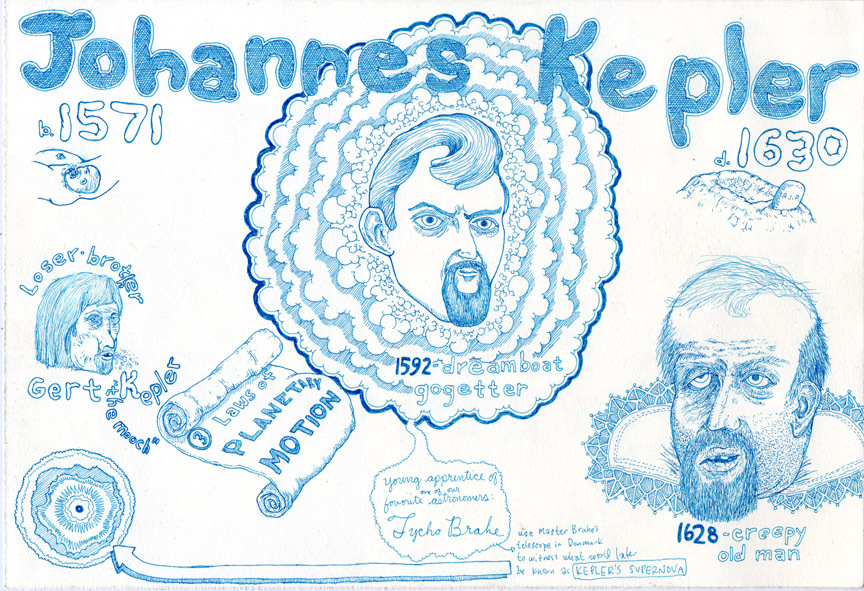 Johannes Kepler
b. 1571
d. 1630
R.I.P.
Loser brother
Gert "the mooch" Kepler
1592-dreamboat
gogetter
3 Laws of
PLANETARY
MOTION
young apprentice of
one of our
favorite astronomers:
Tycho Brahe
use Master Brahe's
telescope in Denmark
to witness what would later
be known as KEPLER'S SUPERNOVA
1628-creepy
old man